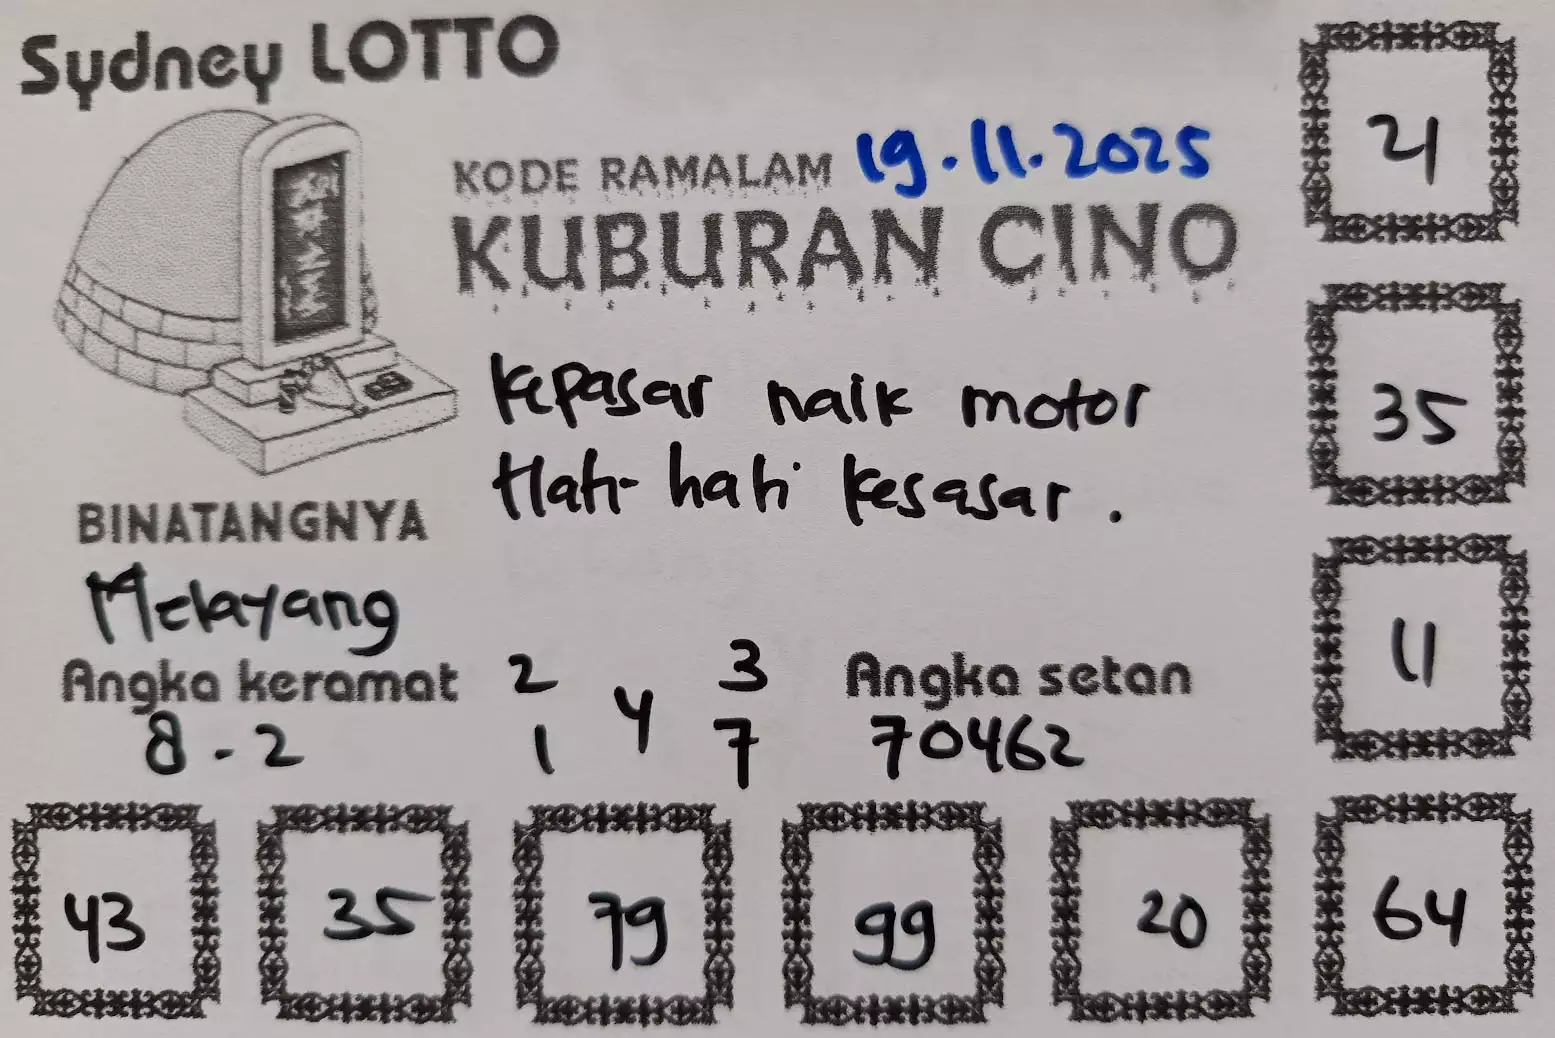 Sydney LOTTO
KODE RAMALAM 19.11.2025
KUBURAN CINO
Kepasar naik motor
Hati-hati kesasar.
BINATANGNYA
Melayang
Angka keramat
8-2
2 3
4
1 7
Angka setan
70462
21
35
11
64
43 35 79 99 20